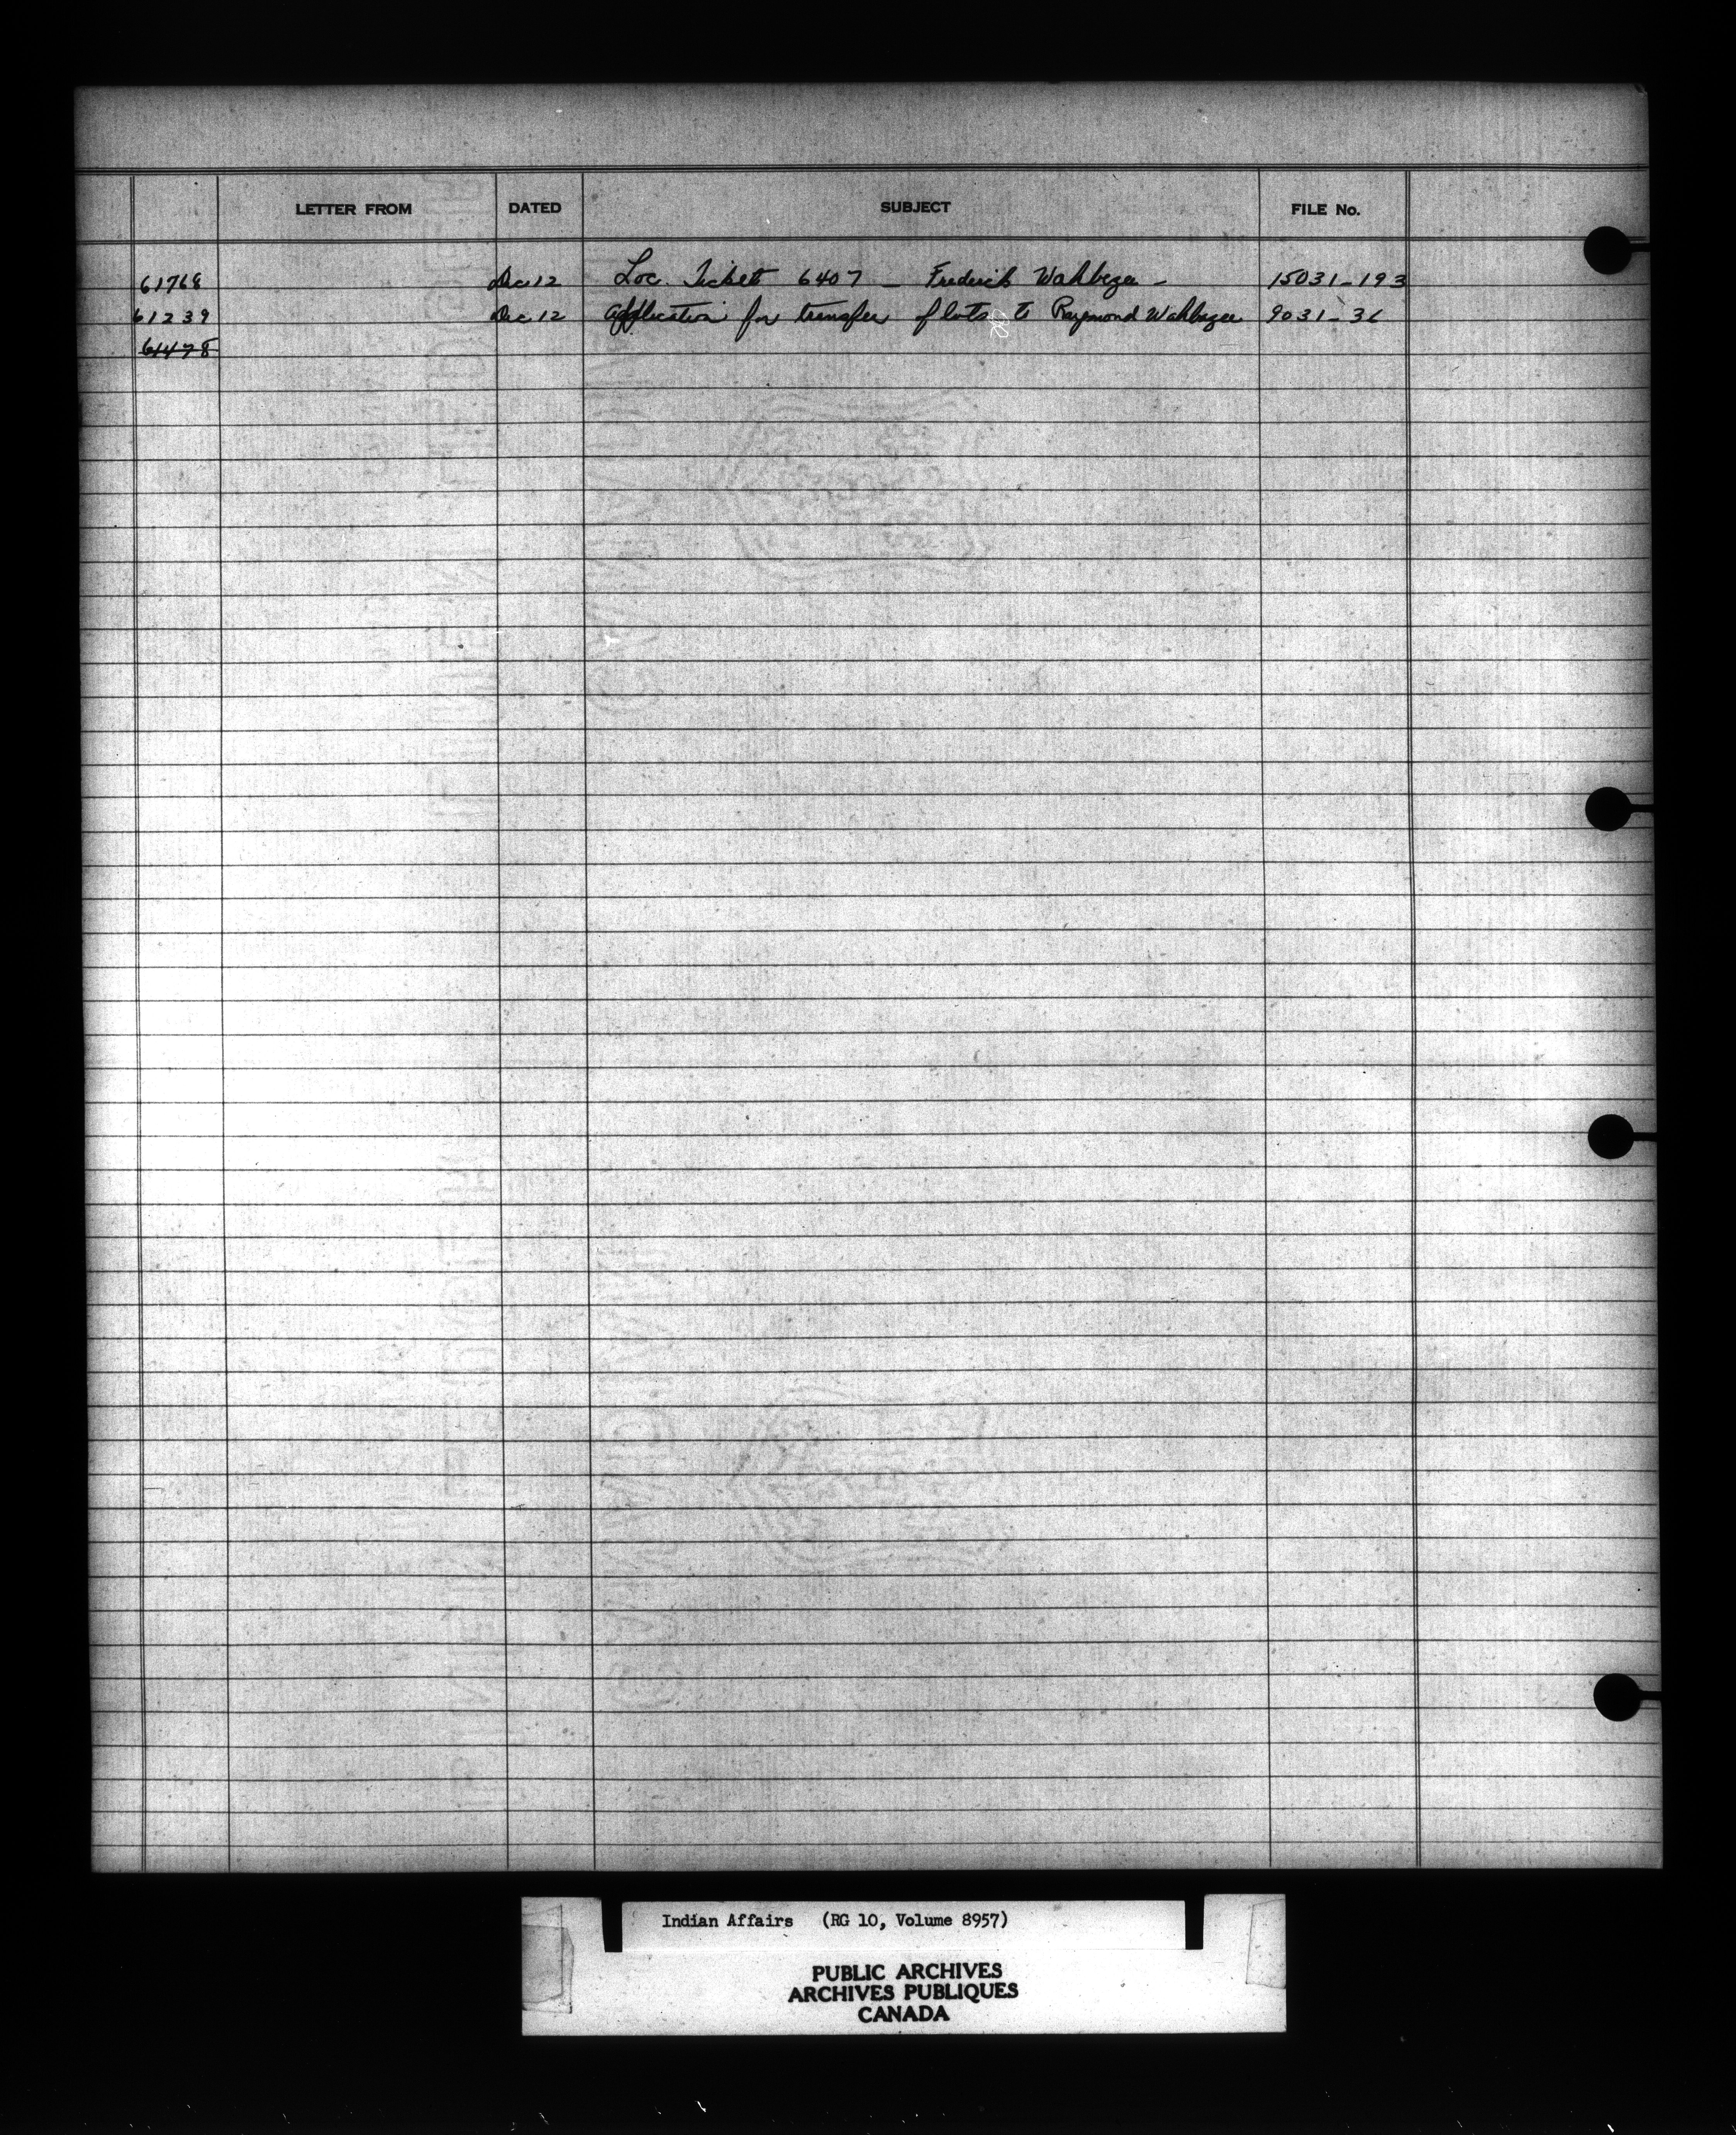 LETTER FROM DATED SUBJECT FILE No.
61768 Dec 12 Loc. Ticket 6407 — Frederick Wahbegee — 15031-193
61239 Dec 12 Application for transfer of lots to Raymond Wahbegee 9031-36
61478
Indian Affairs (RG 10, Volume 8957)
PUBLIC ARCHIVES
ARCHIVES PUBLIQUES
CANADA